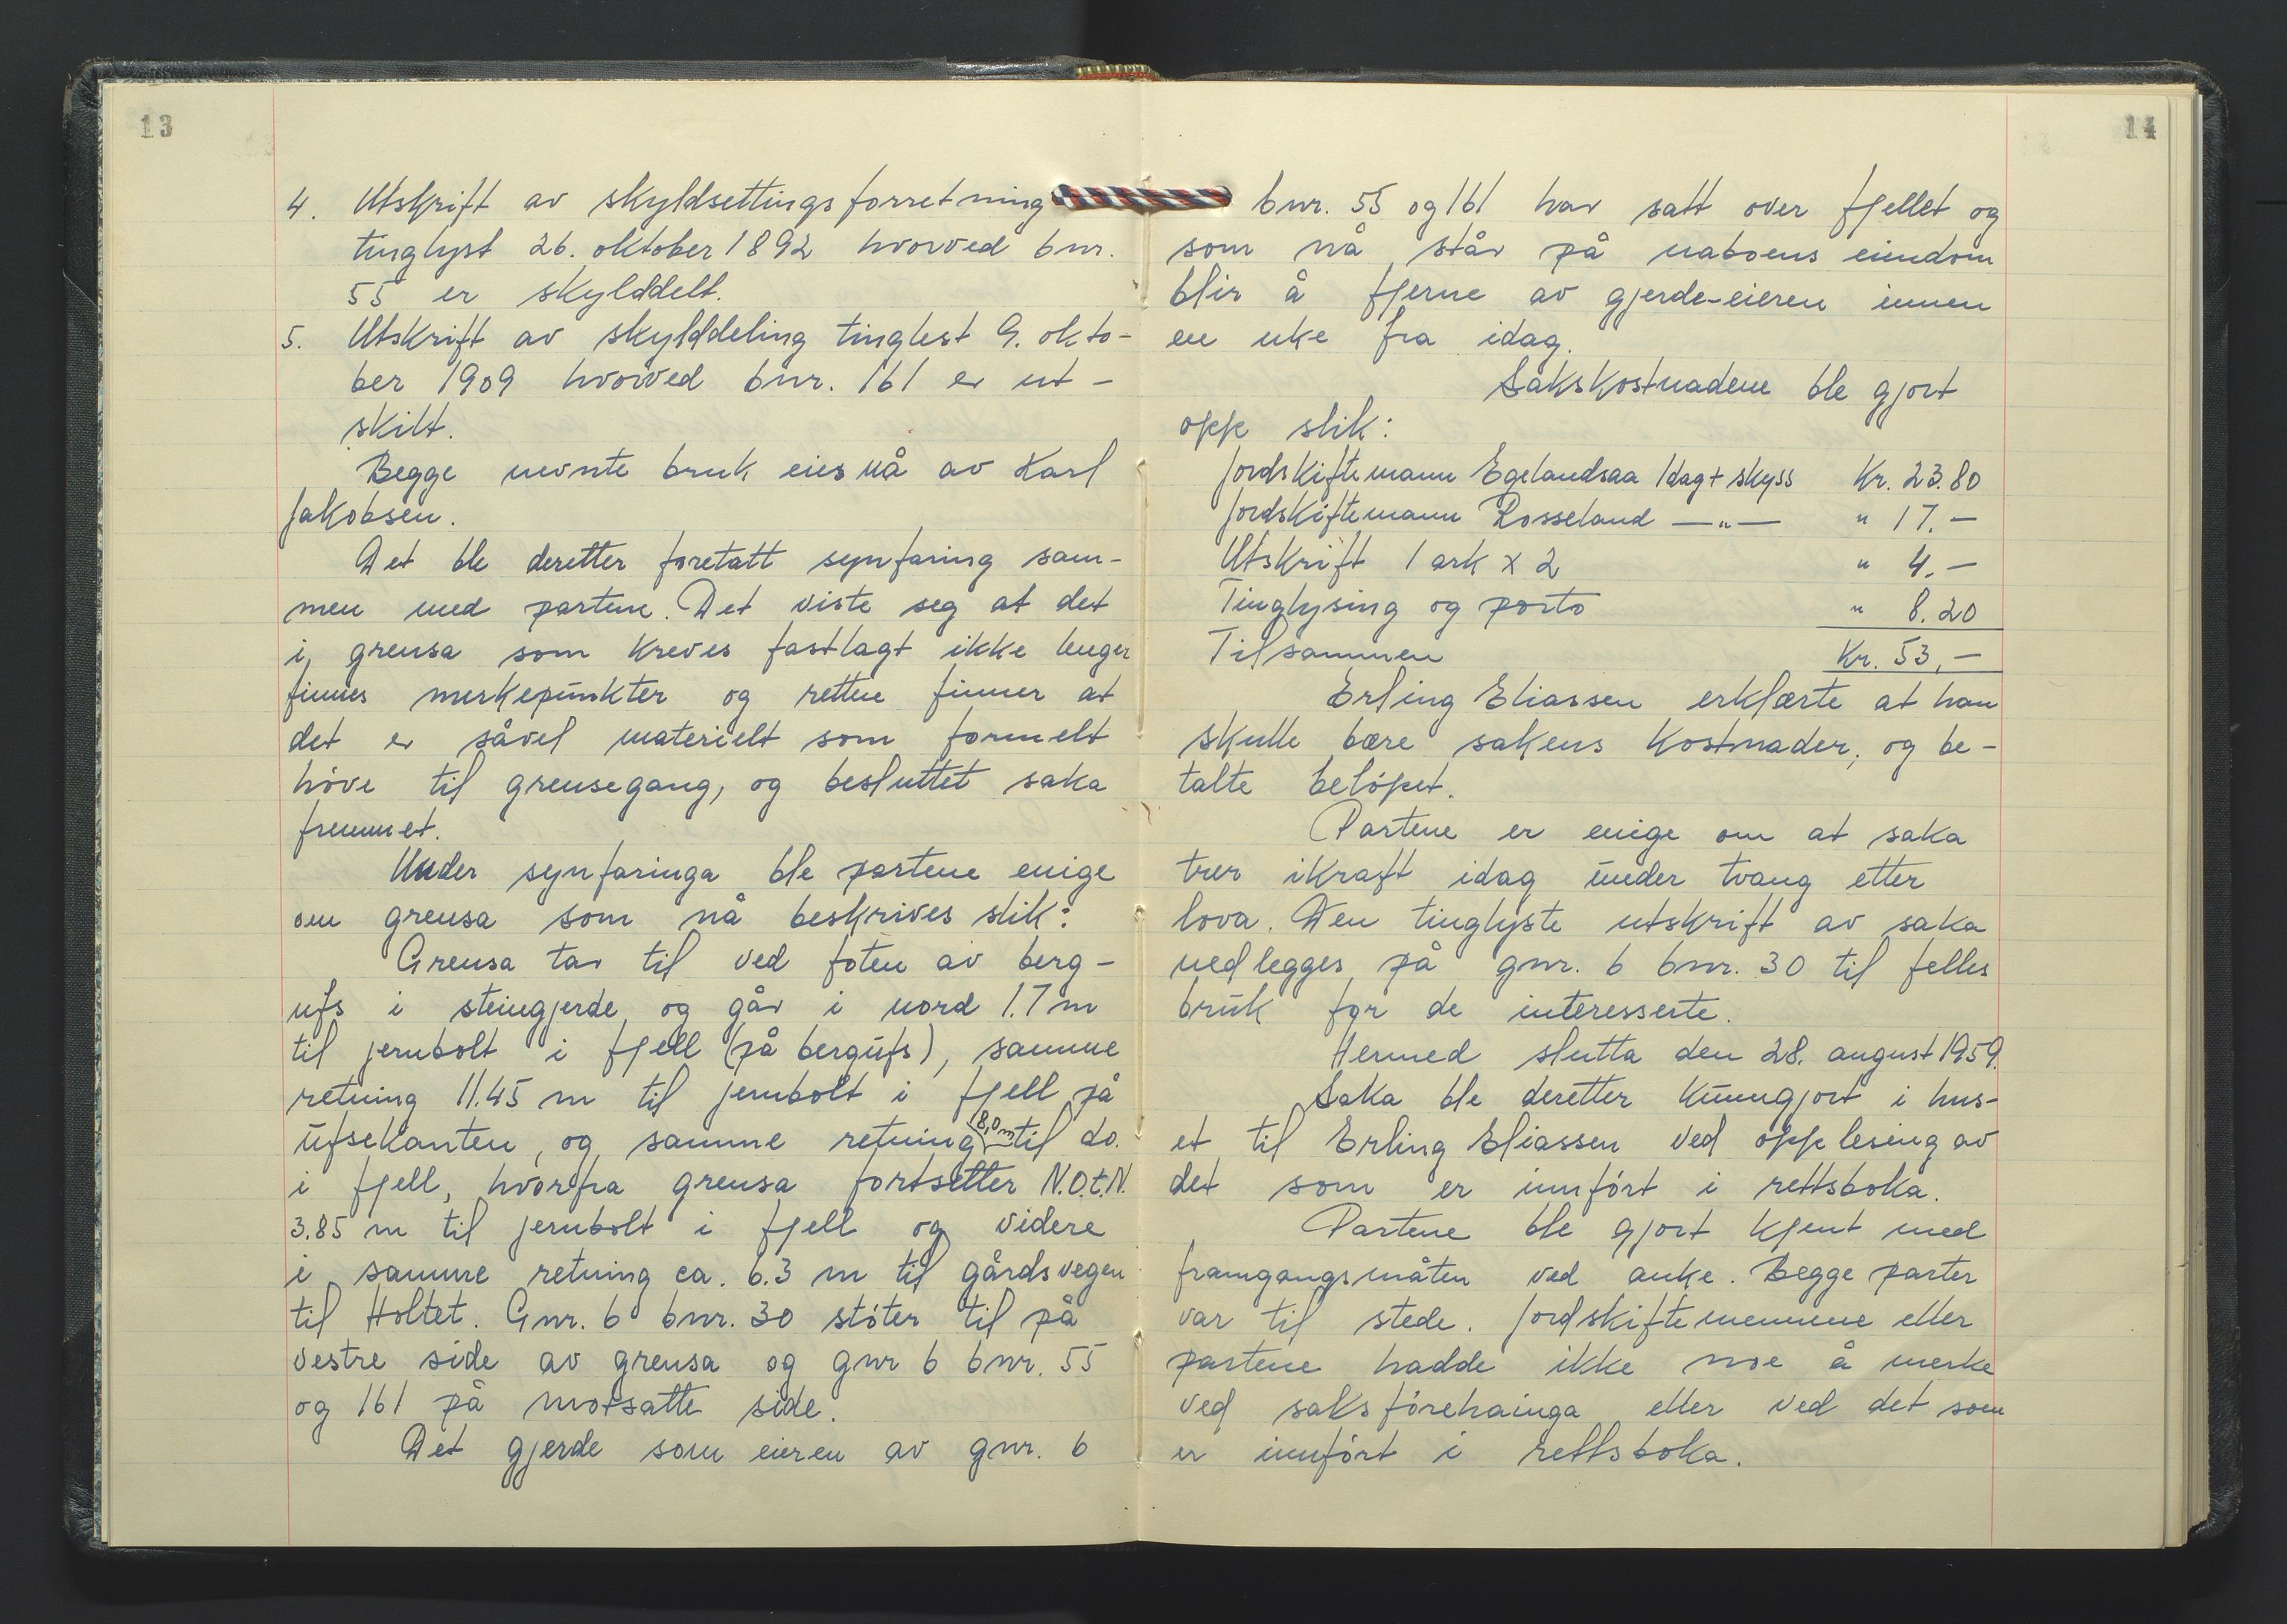 13
4. Utskrift av skyldsettingsforretning
tinglyst 26. oktober 1892 hvorved bnr.
55 er skylddelt.
5. Utskrift av skylddeling tinglest 9. okto-
ber 1909 hvorved bnr. 161 er ut-
skilt.
Begge nevnte bruk eies nå av Karl
Jakobsen.
Det ble deretter foretatt synfaring sam-
men med partene. Det viste seg at det
i grensa som kreves fastlagt ikke lenger
finnes merkepunkter og retten finner at
det er såvel materielt som formelt
höve til grensegang, og besluttet saka
fremmet.
Under synfaringa ble partene enige
om grensa som nå beskrives slik:
Grensa tar til ved foten av berg-
ufs i steingjerde og går i nord 1.7 m
til jernbolt i fjell (på bergufs), samme
retning 11.45 m til jernbolt i fjell på
ufsekanten, og samme retning 8,0 m til do.
i fjell, hvorfra grensa fortsetter N.O.t.N.
3.85 m til jernbolt i fjell og videre
i samme retning ca. 6.3 m til gårdsvegen
til Holtet. Gnr. 6 bnr. 30 stöter til på
vestre side av grensa og gnr 6 bnr. 55
og 161 på motsatte side.
Det gjerde som eieren av gnr. 6
14
bnr. 55 og 161 har satt over fjellet og
som nå står på naboens eiendom
blir å fjerne av gjerde-eieren innen
en uke fra idag.
Sakskostnadene ble gjort
opp slik:
Jordskiftemann Egelandsaa 1 dag + skyss Kr. 23.80
Jordskiftemann Rosseland —"— " 17.—
Utskrift 1 ark x 2 " 4.—
Tinglysing og porto " 8.20
Tilsammen Kr. 53,—
Erling Eliassen erklærte at han
skulle bære sakens kostnader, og be-
talte belöpet.
Partene er enige om at saka
trer ikraft idag under tvang etter
lova. Den tinglyste utskrift av saka
nedlegges på gnr. 6 bnr. 30 til felles
bruk for de interesserte.
Hermed slutta den 28. august 1959.
Saka ble deretter kunngjort i hus-
et til Erling Eliassen ved opplesing av
det som er innfört i rettsboka.
Partene ble gjort kjent med
framgangsmåten ved anke. Begge parter
var til stede. Jordskiftemennene eller
partene hadde ikke noe å merke
ved saksförehainga eller ved det som
er innfört i rettsboka.